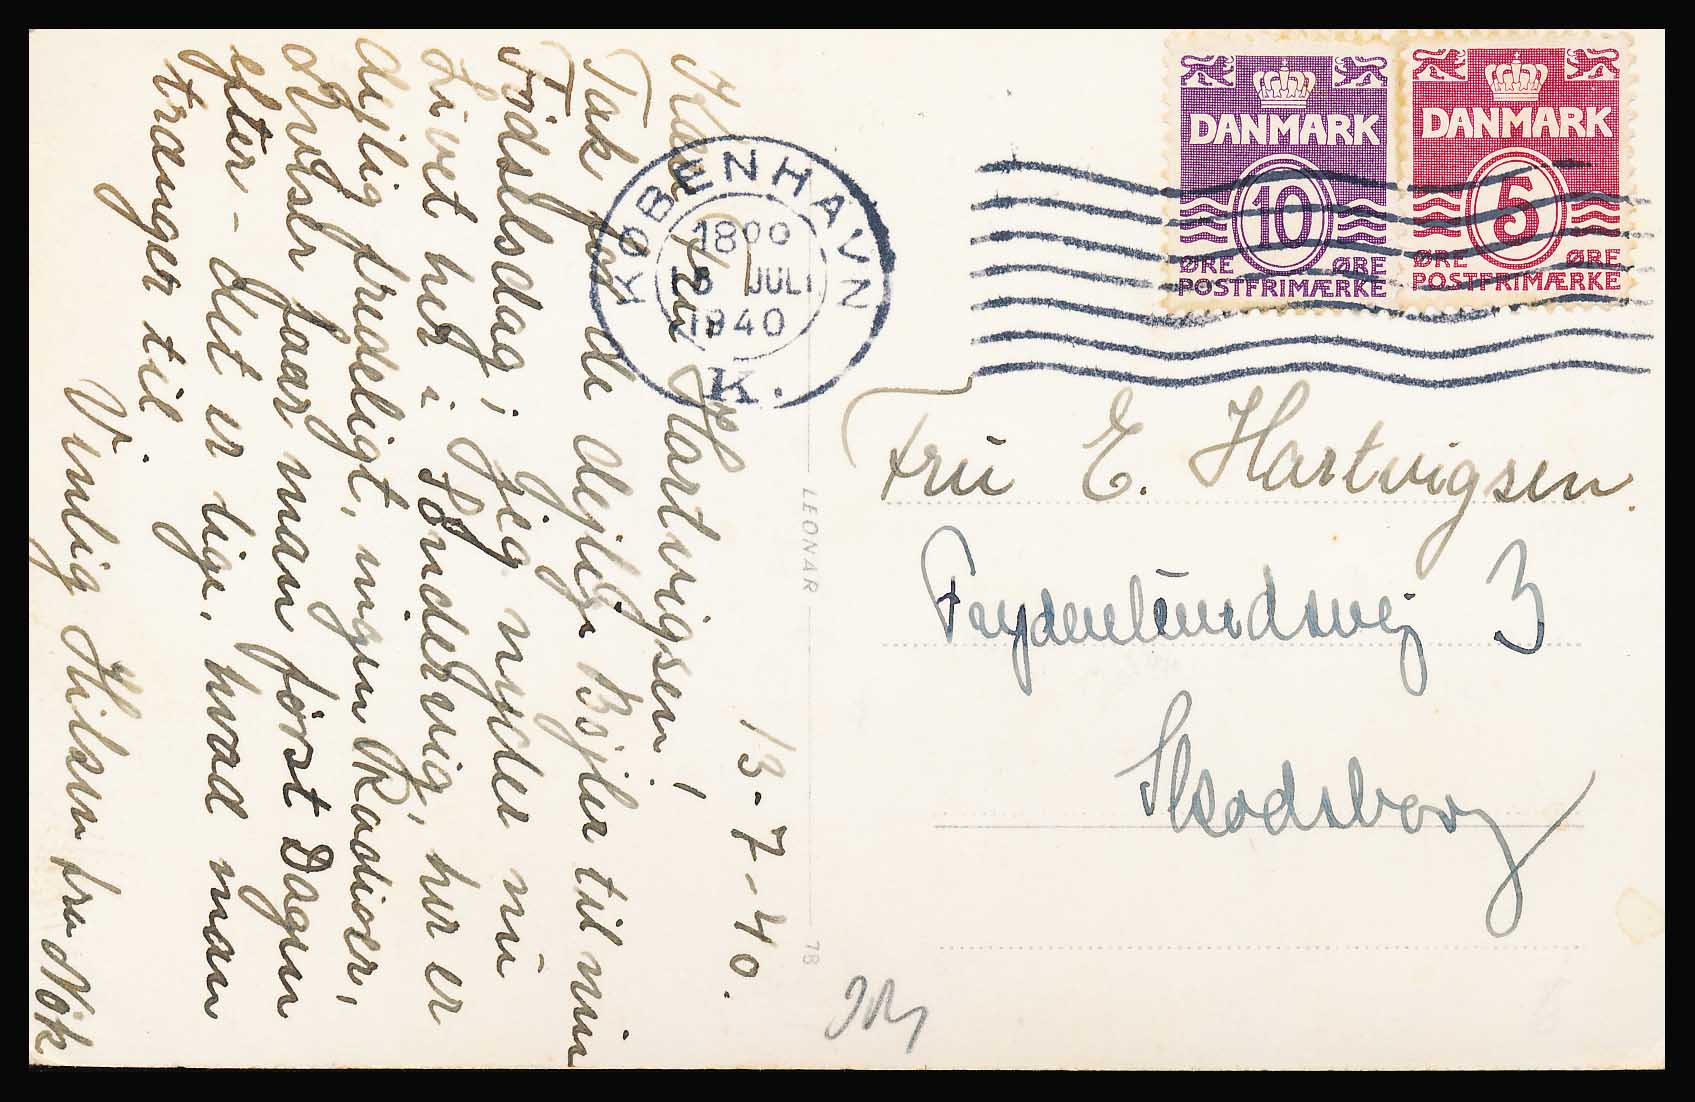 13-7-40.
Kære Fru Hartvigsen!
Tak for de dejlige Bøjler til min
Fødselsdag; jeg nyder nu
Livet her i Søndervig, her er
dejlig fredeligt, ingen Radioer,
Aviser faar man først Dagen
efter - det er lige, hvad man
trænger til.
Venlig Hilsen fra
KØBENHAVN
18 00
JULI
1940
K.
DANMARK
10
ØRE ØRE
POSTFRIMÆRKE
DANMARK
5
ØRE ØRE
POSTFRIMÆRKE
Fru E. Hartvigsen.
Frydenlundsvej 3
Skodsborg
LEONAR